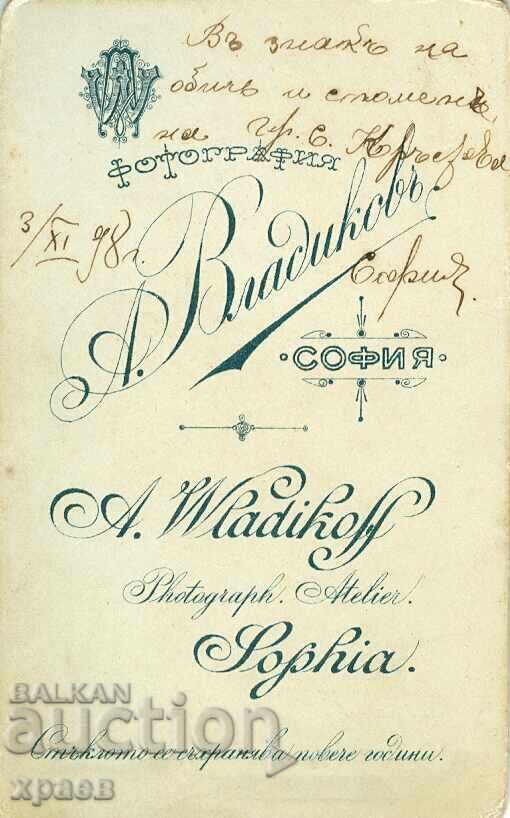 Въ знакъ на
обичь и споменъ
на Гр. С. Кръстева
ФОТОГРАФИЯ
3/XI 98 г.
А. Владиковъ
София
СОФИЯ
A. Wladikoff
Photograph. Atelier.
Sophia.
BALKAN
auction
Стъклото се съхранява повече години.
храев